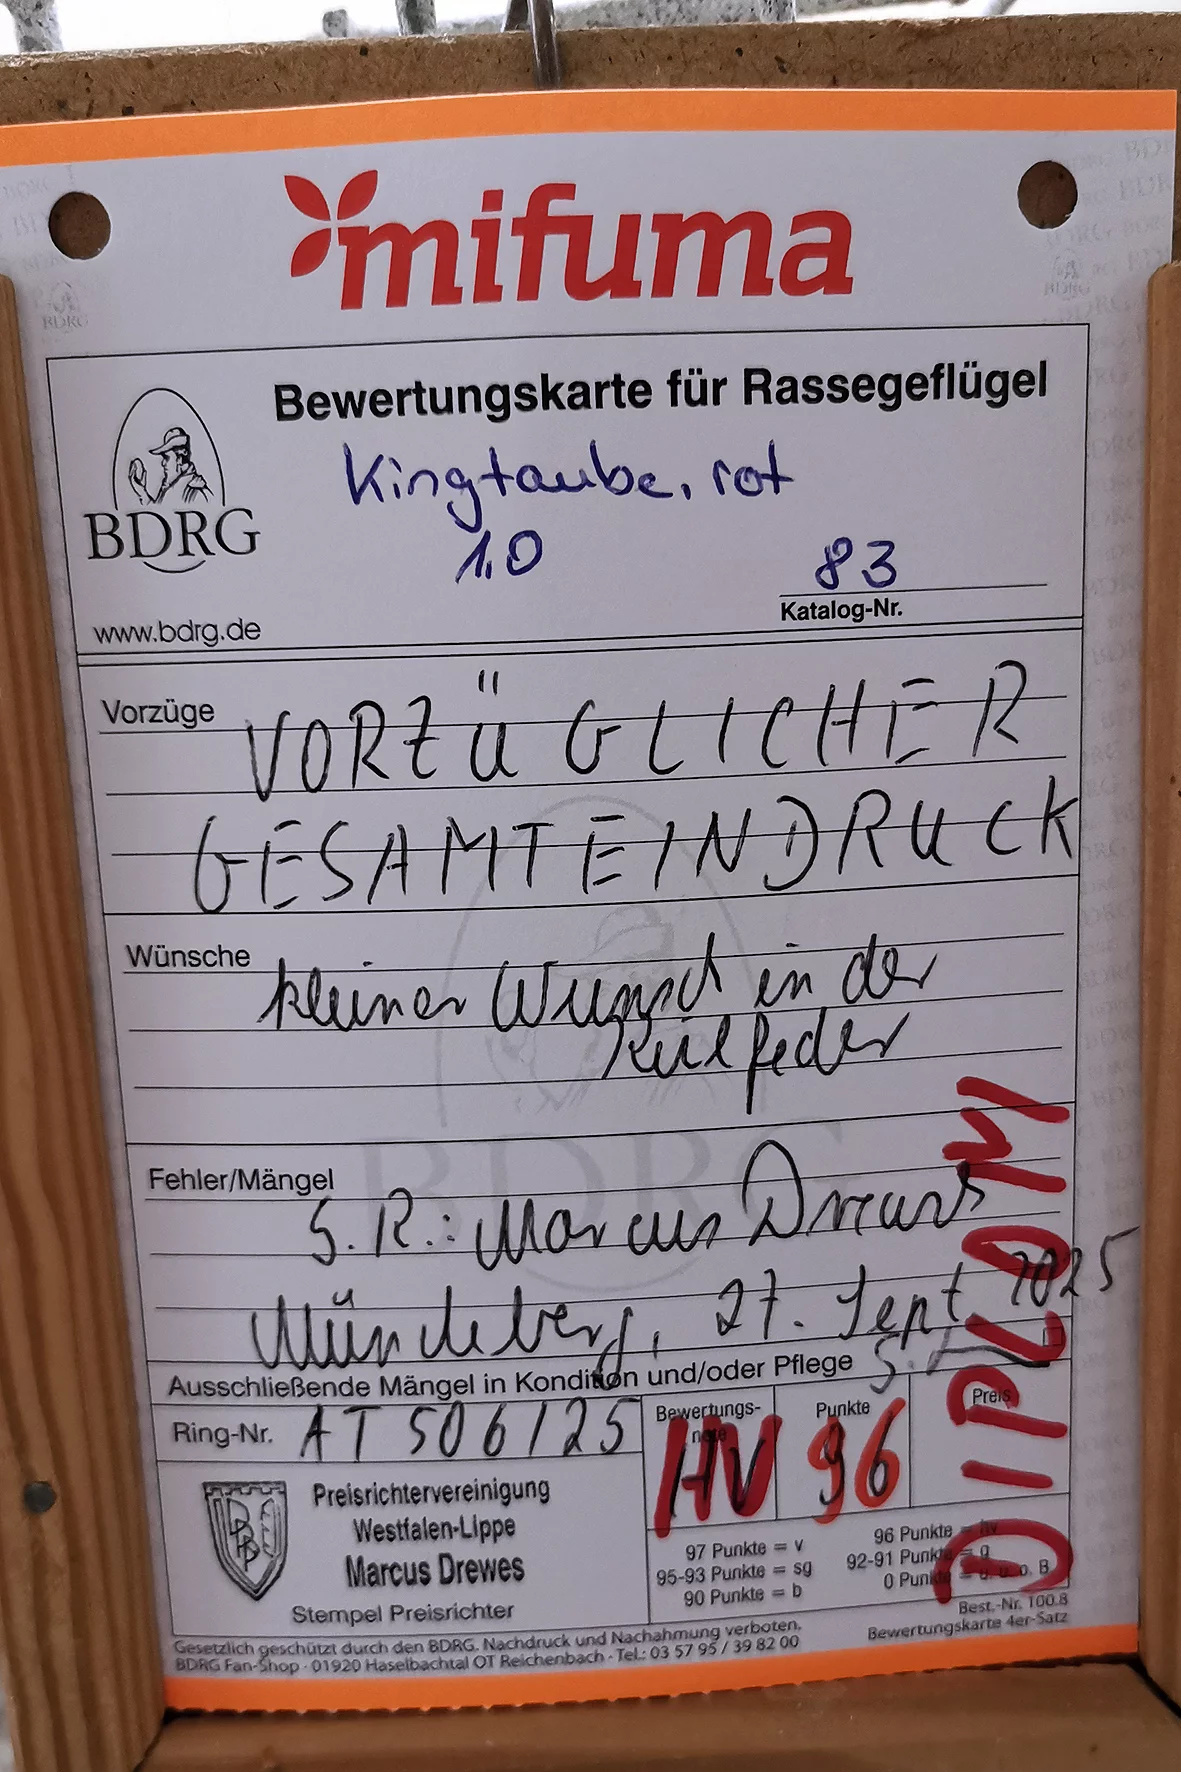 mifuma
Bewertungskarte für Rassegeflügel
BDRG
Kingtaube, rot
1,0
83
Katalog-Nr.
www.bdrg.de
Vorzüge
VORZÜGLICHER
GESAMTEINDRUCK
Wünsche
kleiner Wunsch in der
Keilfeder
Fehler/Mängel
S.R.: Marcus Drewes
Müncheberg, 27. Sept 2025
Ausschließende Mängel in Kondition und/oder Pflege
Ring-Nr. AT 506/25
Bewertungs-
note
HV
Punkte
96
Preis
DIPLOM
Preisrichtervereinigung
Westfalen-Lippe
Marcus Drewes
Stempel Preisrichter
97 Punkte = v
95-93 Punkte = sg
90 Punkte = b
96 Punkte = hv
92-91 Punkte = g
0 Punkte = u. o. B.
Best.-Nr. 100.8
Bewertungskarte 4er-Satz
Gesetzlich geschützt durch den BDRG. Nachdruck und Nachahmung verboten.
BDRG Fan-Shop · 01920 Haselbachtal OT Reichenbach · Tel.: 03 57 95 / 39 82 00